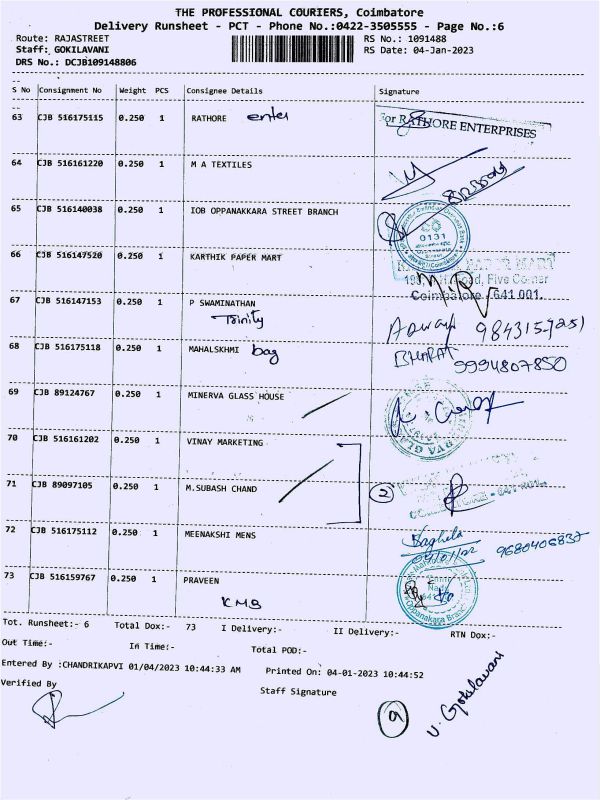 THE PROFESSIONAL COURIERS, Coimbatore
Delivery Runsheet - PCT - Phone No.:0422-3505555 - Page No.:6
Route: RAJASTREET
RS No.: 1091488
Staff: GOKILAVANI
RS Date: 04-Jan-2023
DRS No.: DCJB109148806
S No Consignment No Weight PCS Consignee Details Signature
63 CJB 516175115 0.250 1 RATHORE enter
For RATHORE ENTERPRISES
64 CJB 516161220 0.250 1 M A TEXTILES
65 CJB 516140038 0.250 1 IOB OPPANAKKARA STREET BRANCH
0131
66 CJB 516147520 0.250 1 KARTHIK PAPER MART
PAPER MART
Road, Five Corner
Coimbatore - 641 001.
67 CJB 516147153 0.250 1 P SWAMINATHAN
Trinity
68 CJB 516175118 0.250 1 MAHALSKHMI bag
BHARAT
9994807850
69 CJB 89124767 0.250 1 MINERVA GLASS HOUSE
70 CJB 516161202 0.250 1 VINAY MARKETING
71 CJB 89097105 0.250 1 M.SUBASH CHAND
2
72 CJB 516175112 0.250 1 MEENAKSHI MENS
9680406837
73 CJB 516159767 0.250 1 PRAVEEN
KMB
Tot. Runsheet:- 6 Total Dox:- 73 I Delivery:- II Delivery:- RTN Dox:-
Out Time:- In Time:- Total POD:-
Entered By :CHANDRIKAPVI 01/04/2023 10:44:33 AM Printed On: 04-01-2023 10:44:52
Verified By
Staff Signature
9
V. Gokilavani